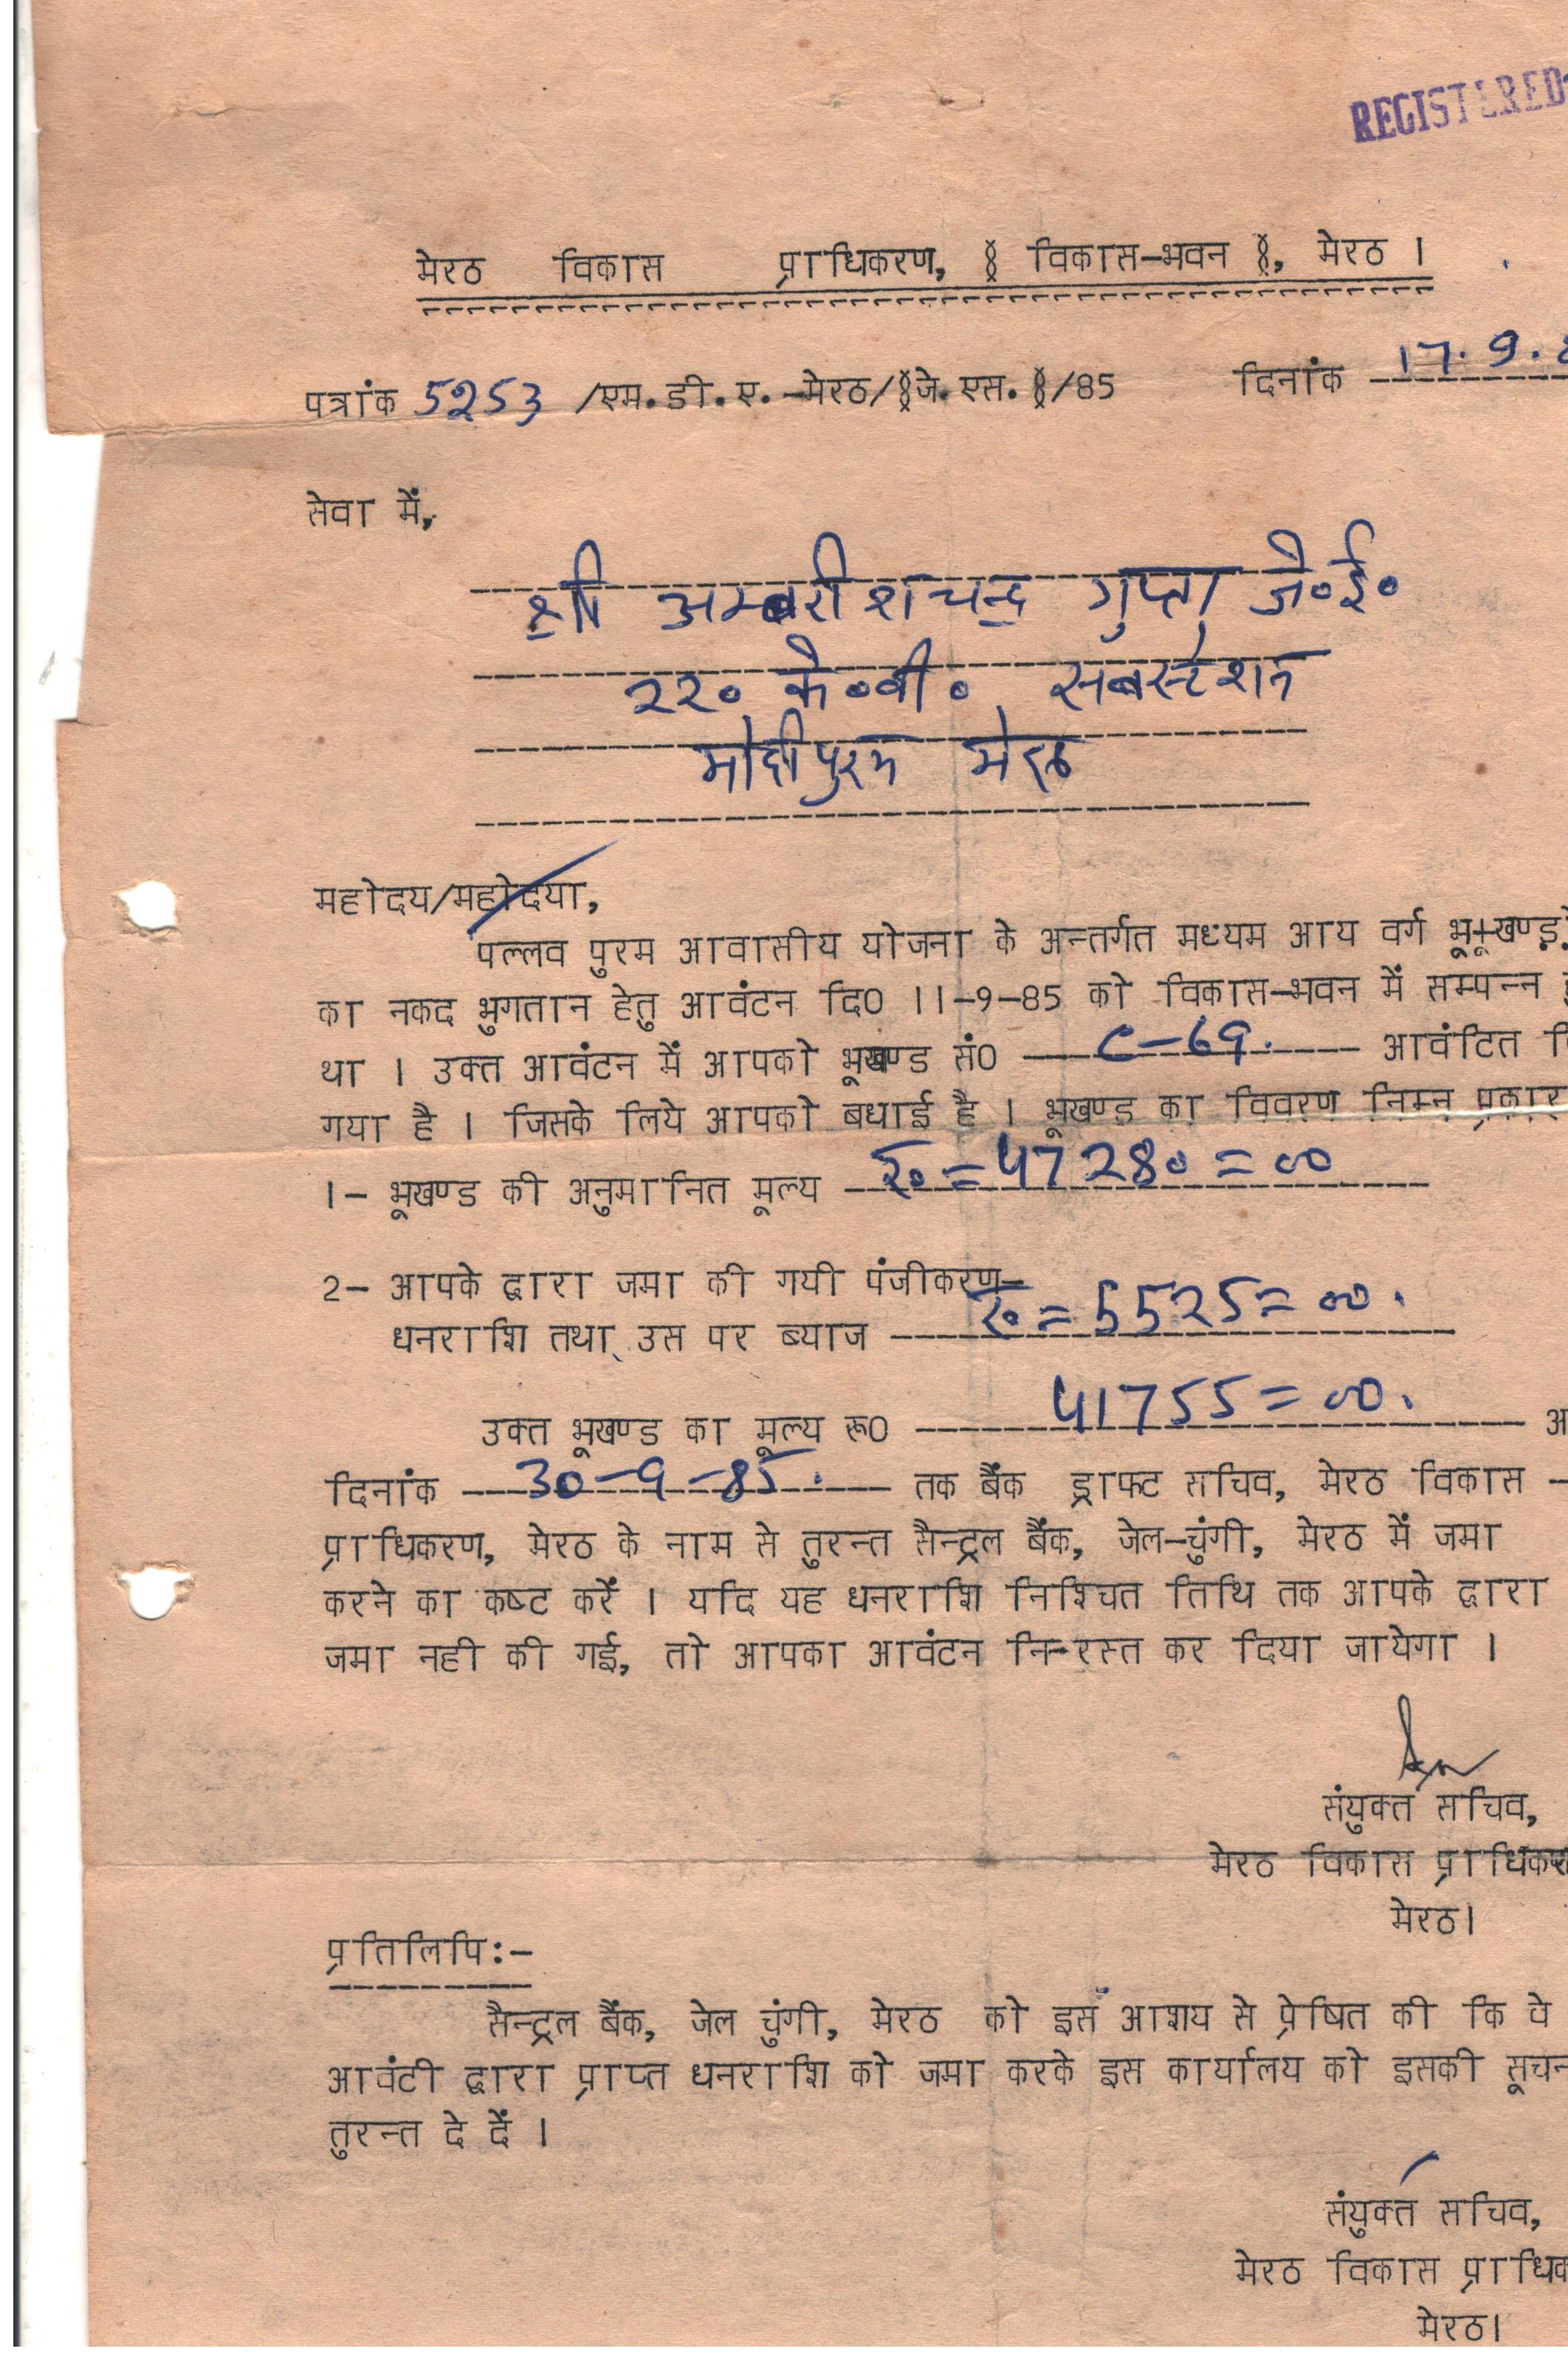 REGISTERED
मेरठ विकास प्राधिकरण, ( विकास-भवन ), मेरठ ।
पत्रांक 5253 /एम.डी.ए.-मेरठ/(जे.एस.)/85 दिनांक 17.9.
सेवा में,
श्री अम्बरीश चन्द्र गुप्ता जे०ई०
२२० के०वी० सबस्टेशन
मोदीपुरम मेरठ
महोदय/महोदया,
पल्लव पुरम आवासीय योजना के अन्तर्गत मध्यम आय वर्ग भू-खण्डों
का नकद भुगतान हेतु आवंटन दि0 11-9-85 को विकास-भवन में सम्पन्न
था । उक्त आवंटन में आपको भूखण्ड सं0 C-69. आवंटित
गया है । जिसके लिये आपको बधाई है । भूखण्ड का विवरण निम्न प्रकार
1- भूखण्ड की अनुमानित मूल्य रू० = 47280 = 00
2- आपके द्वारा जमा की गयी पंजीकरण-
धनराशि तथा उस पर ब्याज रू० = 5525 = 00.
उक्त भूखण्ड का मूल्य रू0 41755 = 00.
दिनांक 30-9-85. तक बैंक ड्राफ्ट सचिव, मेरठ विकास -
प्राधिकरण, मेरठ के नाम से तुरन्त सैन्ट्रल बैंक, जेल-चुंगी, मेरठ में जमा
करने का कष्ट करें । यदि यह धनराशि निश्चित तिथि तक आपके द्वारा
जमा नही की गई, तो आपका आवंटन निरस्त कर दिया जायेगा ।
संयुक्त सचिव,
मेरठ विकास प्राधिकरण
मेरठ।
प्रतिलिपि:-
सैन्ट्रल बैंक, जेल चुंगी, मेरठ को इस आशय से प्रेषित की कि वे
आवंटी द्वारा प्राप्त धनराशि को जमा करके इस कार्यालय को इसकी सूचन
तुरन्त दे दें ।
संयुक्त सचिव,
मेरठ विकास प्राधिक
मेरठ।